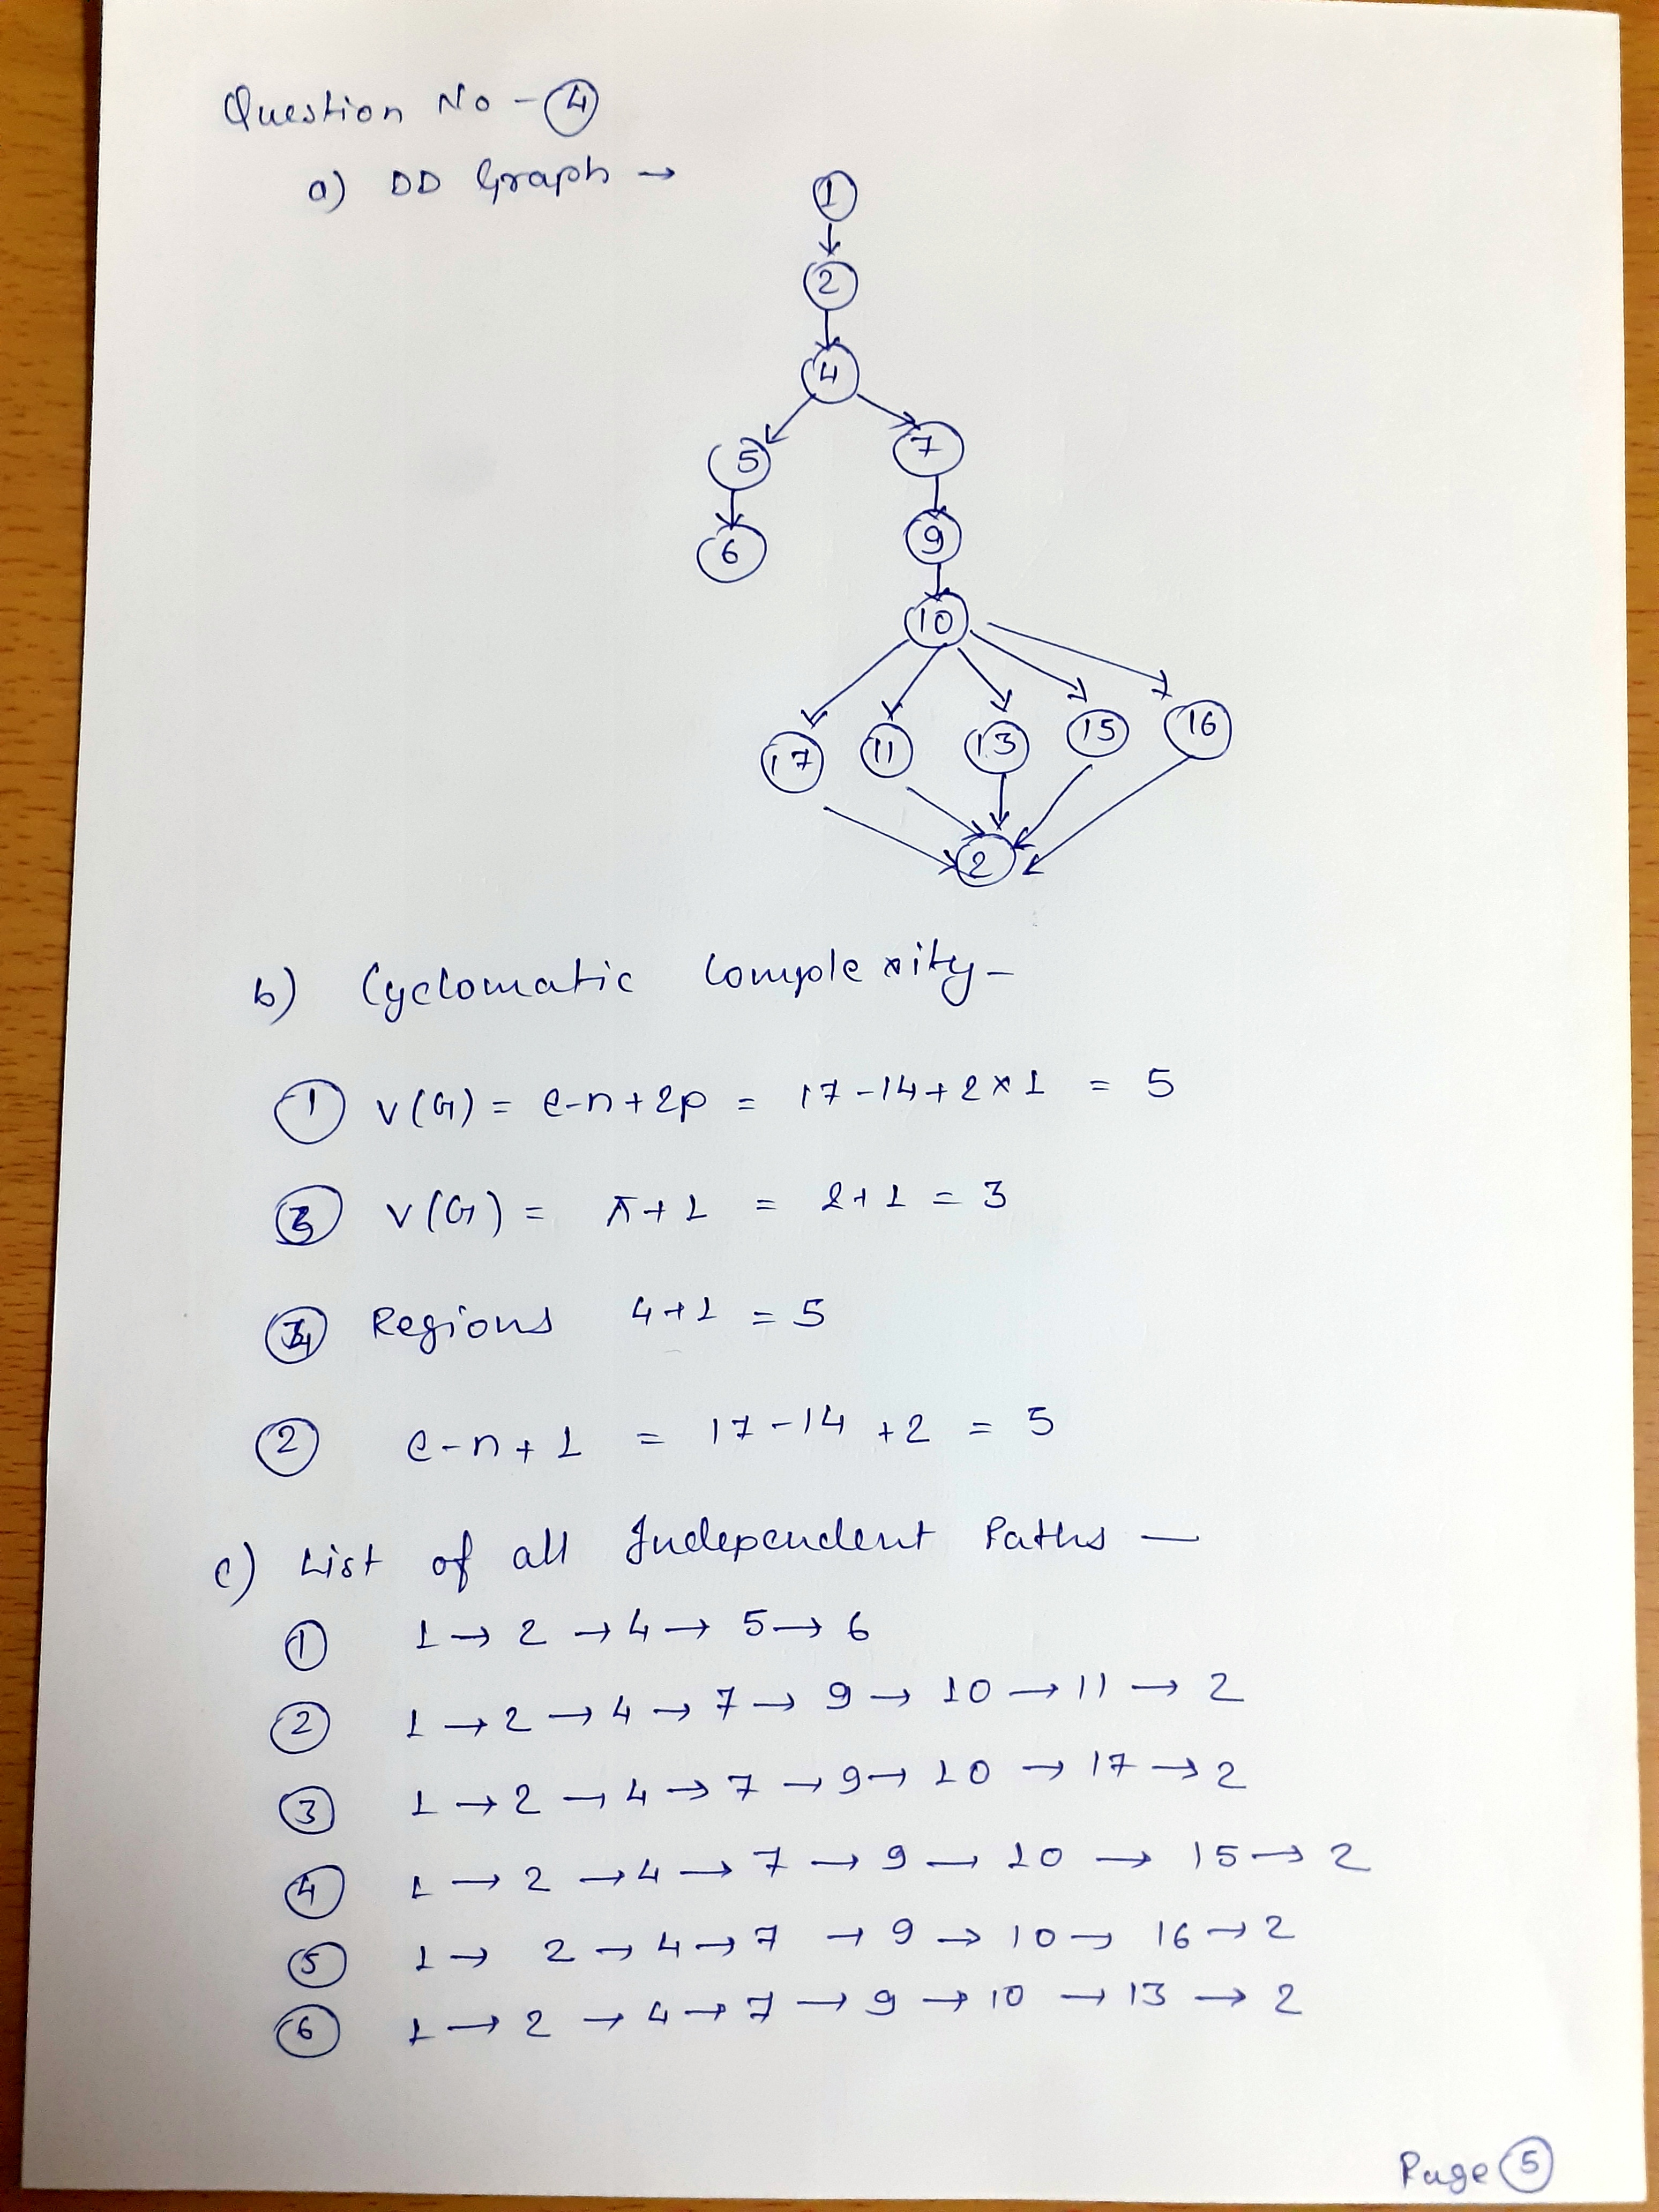 Question No - 4
a) DD Graph →
1
2
4
5 7
6 9
10
17 11 13 15 16
2
b) Cyclomatic Complexity -
1 V(G) = e-n+2p = 17-14+2×1 = 5
3 V(G) = π+1 = 2+1 = 3
4 Regions 4+1 = 5
2 e-n+1 = 17-14+2 = 5
c) List of all Independent Paths —
1 1→2→4→5→6
2 1→2→4→7→9→10→11→2
3 1→2→4→7→9→10→17→2
4 1→2→4→7→9→10→15→2
5 1→2→4→7→9→10→16→2
6 1→2→4→7→9→10→13→2
Page 5